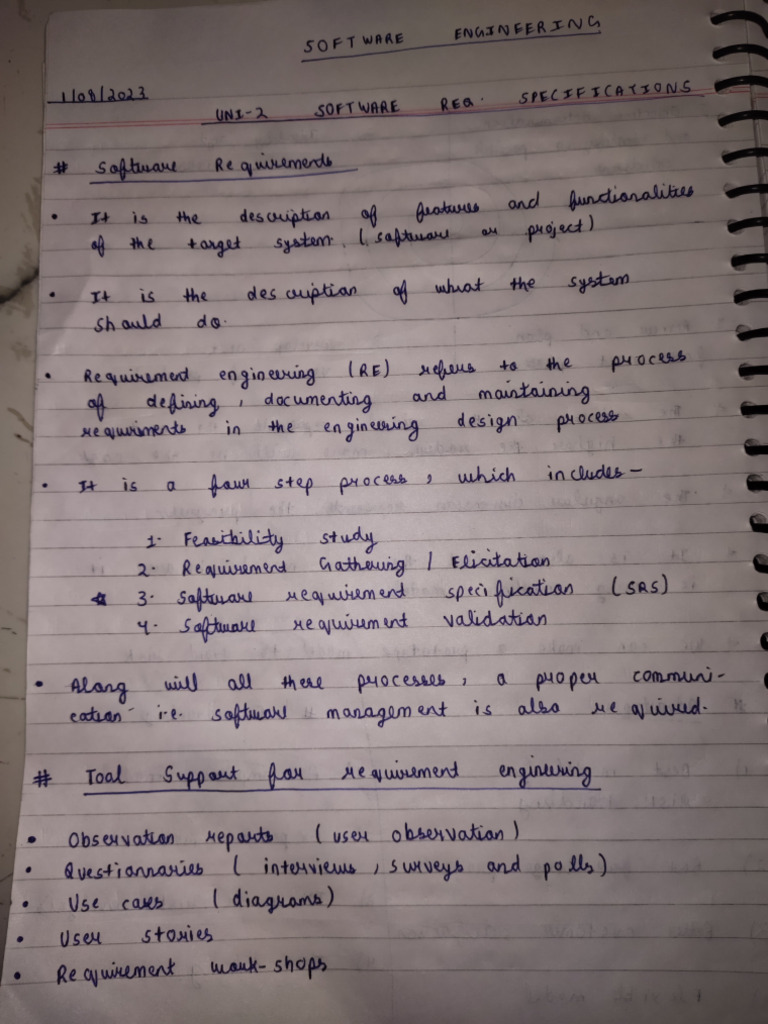 SOFTWARE ENGINEERING
1/08/2023
UNI-2 SOFTWARE REQ. SPECIFICATIONS
# Software Requirements
• It is the description of features and functionalities
of the target system. (software or project)
• It is the description of what the system
should do.
• Requirement engineering (RE) refers to the process
of defining, documenting and maintaining
requirements in the engineering design process
• It is a four step process, which includes-
1. Feasibility study
2. Requirement Gathering / Elicitation
3. Software requirement specification (SRS)
4. Software requirement validation
• Along will all these processes, a proper communi-
cation i.e. software management is also required.
# Tool Support for requirement engineering
• Observation reports (user observation)
• Questionnaries (interviews, surveys and polls)
• Use cases (diagrams)
• User stories
• Requirement work-shops